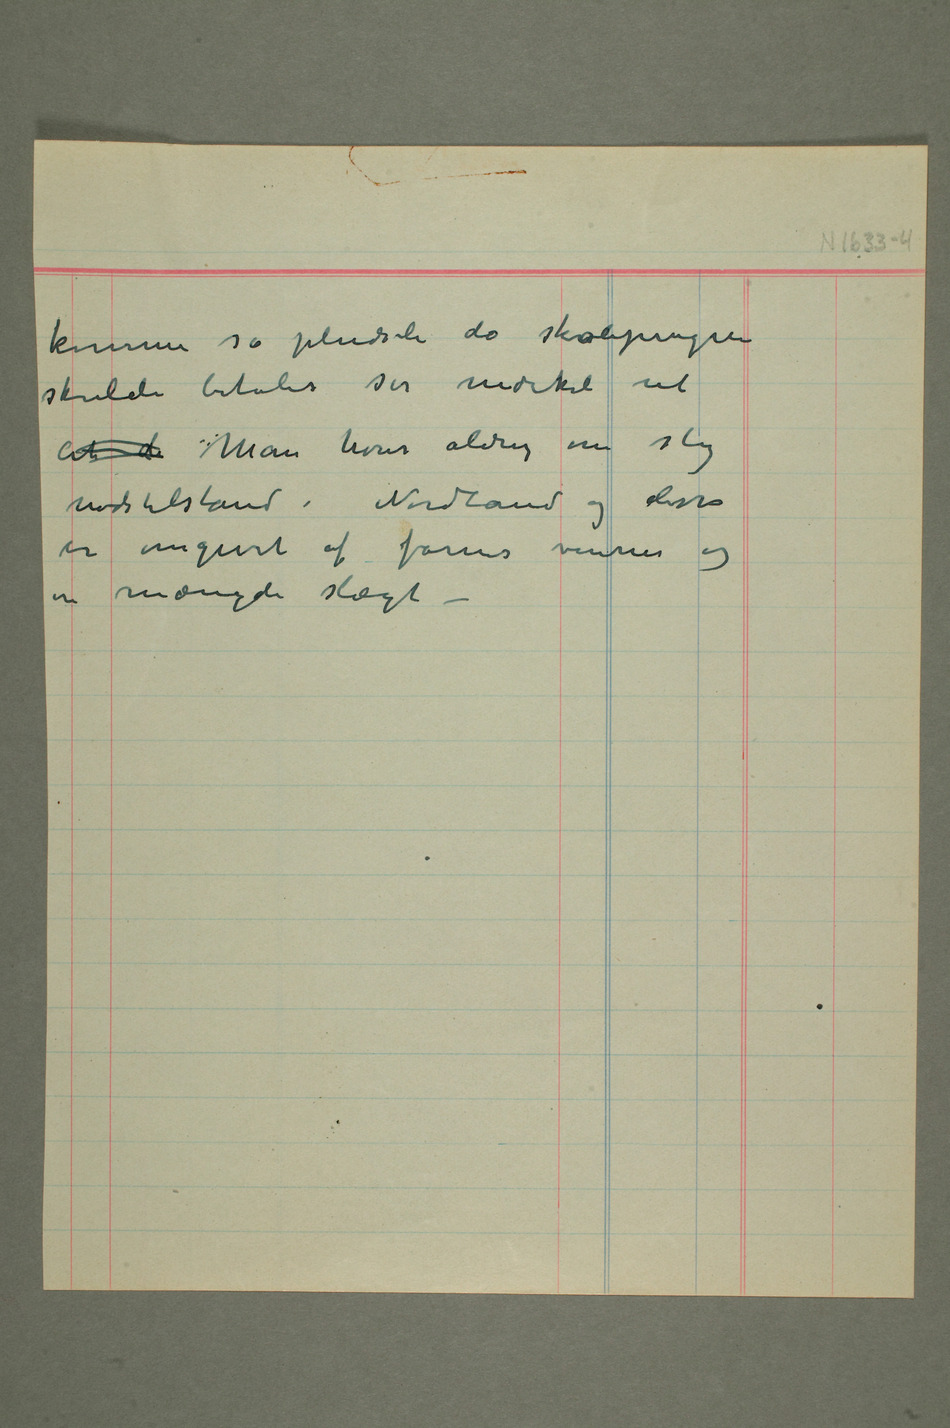 N 1633-4
komme så pludseli da skolepengene
skulde betales ser mærkel ut
At de Man hører aldrig om slig
nødstilstand i Nordland og disse
er omgivet af farens venner og
en mængde slægt –